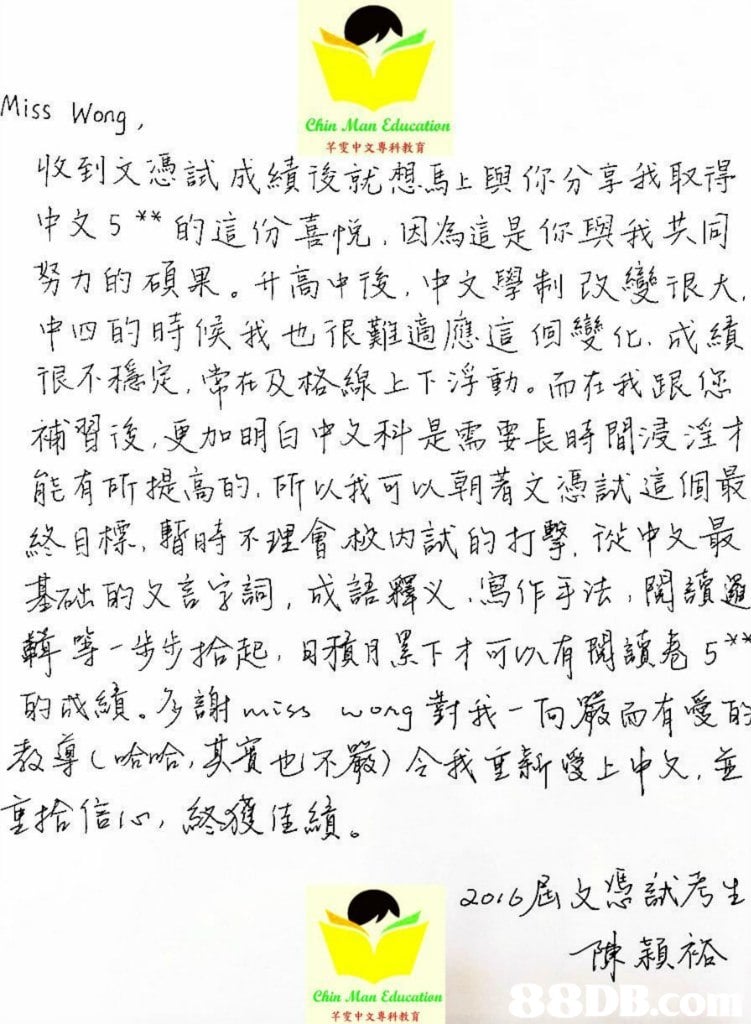 Miss Wong,
Chin Man Education
芊雯中文專科教育
收到文憑試成績後就想馬上與你分享我取得
中文5**的這份喜悅,因為這是你與我共同
努力的碩果。升高中後,中文學制改變很大,
中四的時候我也很難適應這個變化.成績
很不穩定,常在及格線上下浮動。而在我跟您
補習後,更加明白中文科是需要長時間浸淫才
能有所提高的.所以我可以朝著文憑試這個最
終目標,暫時不理會校內試的打擊,從中文最
基础的文言字詞,成語釋义,寫作手法,閱讀邏
輯等一步步拾起,日積月累下才可以有閱讀卷5**
的成績。多謝miss wong對我一向嚴而有愛的
教導(哈哈,其實也不嚴)令我重新愛上中文,並
重拾信心,終獲佳績。
2016屆文憑試考生
陳穎裕
Chin Man Education
芊雯中文專科教育
88DB.com